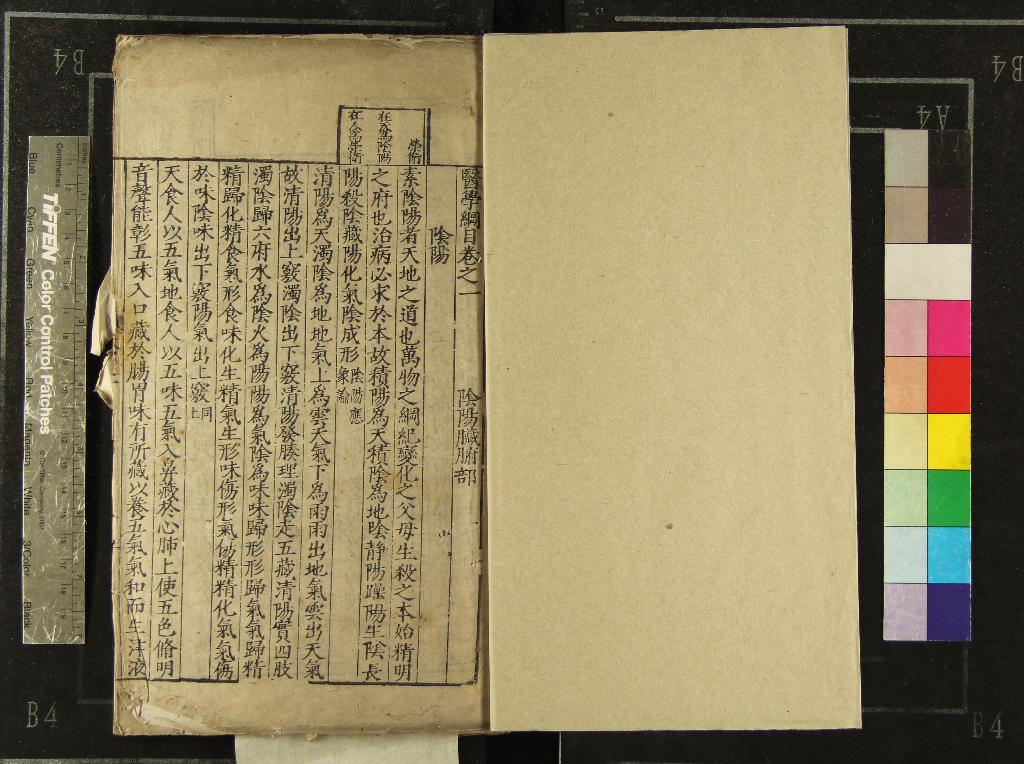 醫學綱目卷之一 陰陽臟腑部
陰陽
素陰陽者天地之道也萬物之綱紀變化之父母生殺之本始精明
之府也治病必求於本故積陽為天積陰為地陰静陽躁陽生陰長
陽殺陰藏陽化氣陰成形陰陽應象論
清陽為天濁陰為地地氣上為雲天氣下為雨雨出地氣雲出天氣
故清陽出上竅濁陰出下竅清陽發腠理濁陰走五藏清陽實四肢
濁陰歸六府水為陰火為陽陽為氣陰為味味歸形形歸氣氣歸精
精歸化精食氣形食味化生精氣生形味傷形氣傷精精化氣氣傷
於味陰味出下竅陽氣出上竅同上
天食人以五氣地食人以五味五氣入鼻藏於心肺上使五色脩明
音聲能彰五味入口藏於腸胃味有所藏以養五氣氣和而生津液
榮衛
在天為陰陽
在人為榮衛
B4
B4
A4
B4
B4
TIFFEN Color Control Patches
Centimetres
Inches
Blue
Cyan
Green
Yellow
Red
Magenta
White
3/Color
Black